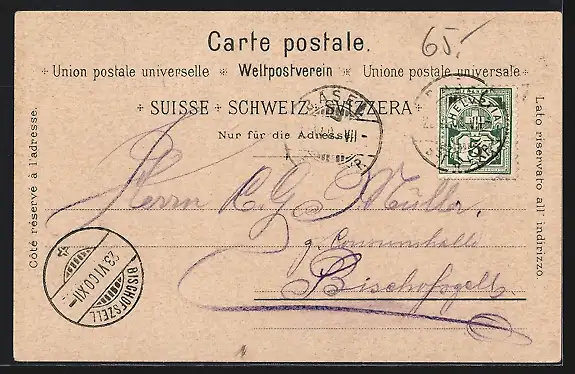 Carte postale.
65.-
Union postale universelle Weltpostverein Unione postale universale
SUISSE SCHWEIZ SVIZZERA
Nur für die Adresse
Côté réservé à l'adresse.
Lato riservato all' indirizzo.
BASEL
HELVETIA
5
Herrn C. G. Müller,
Bischofszell
BISCHOFSZELL
23.VI.00.XII